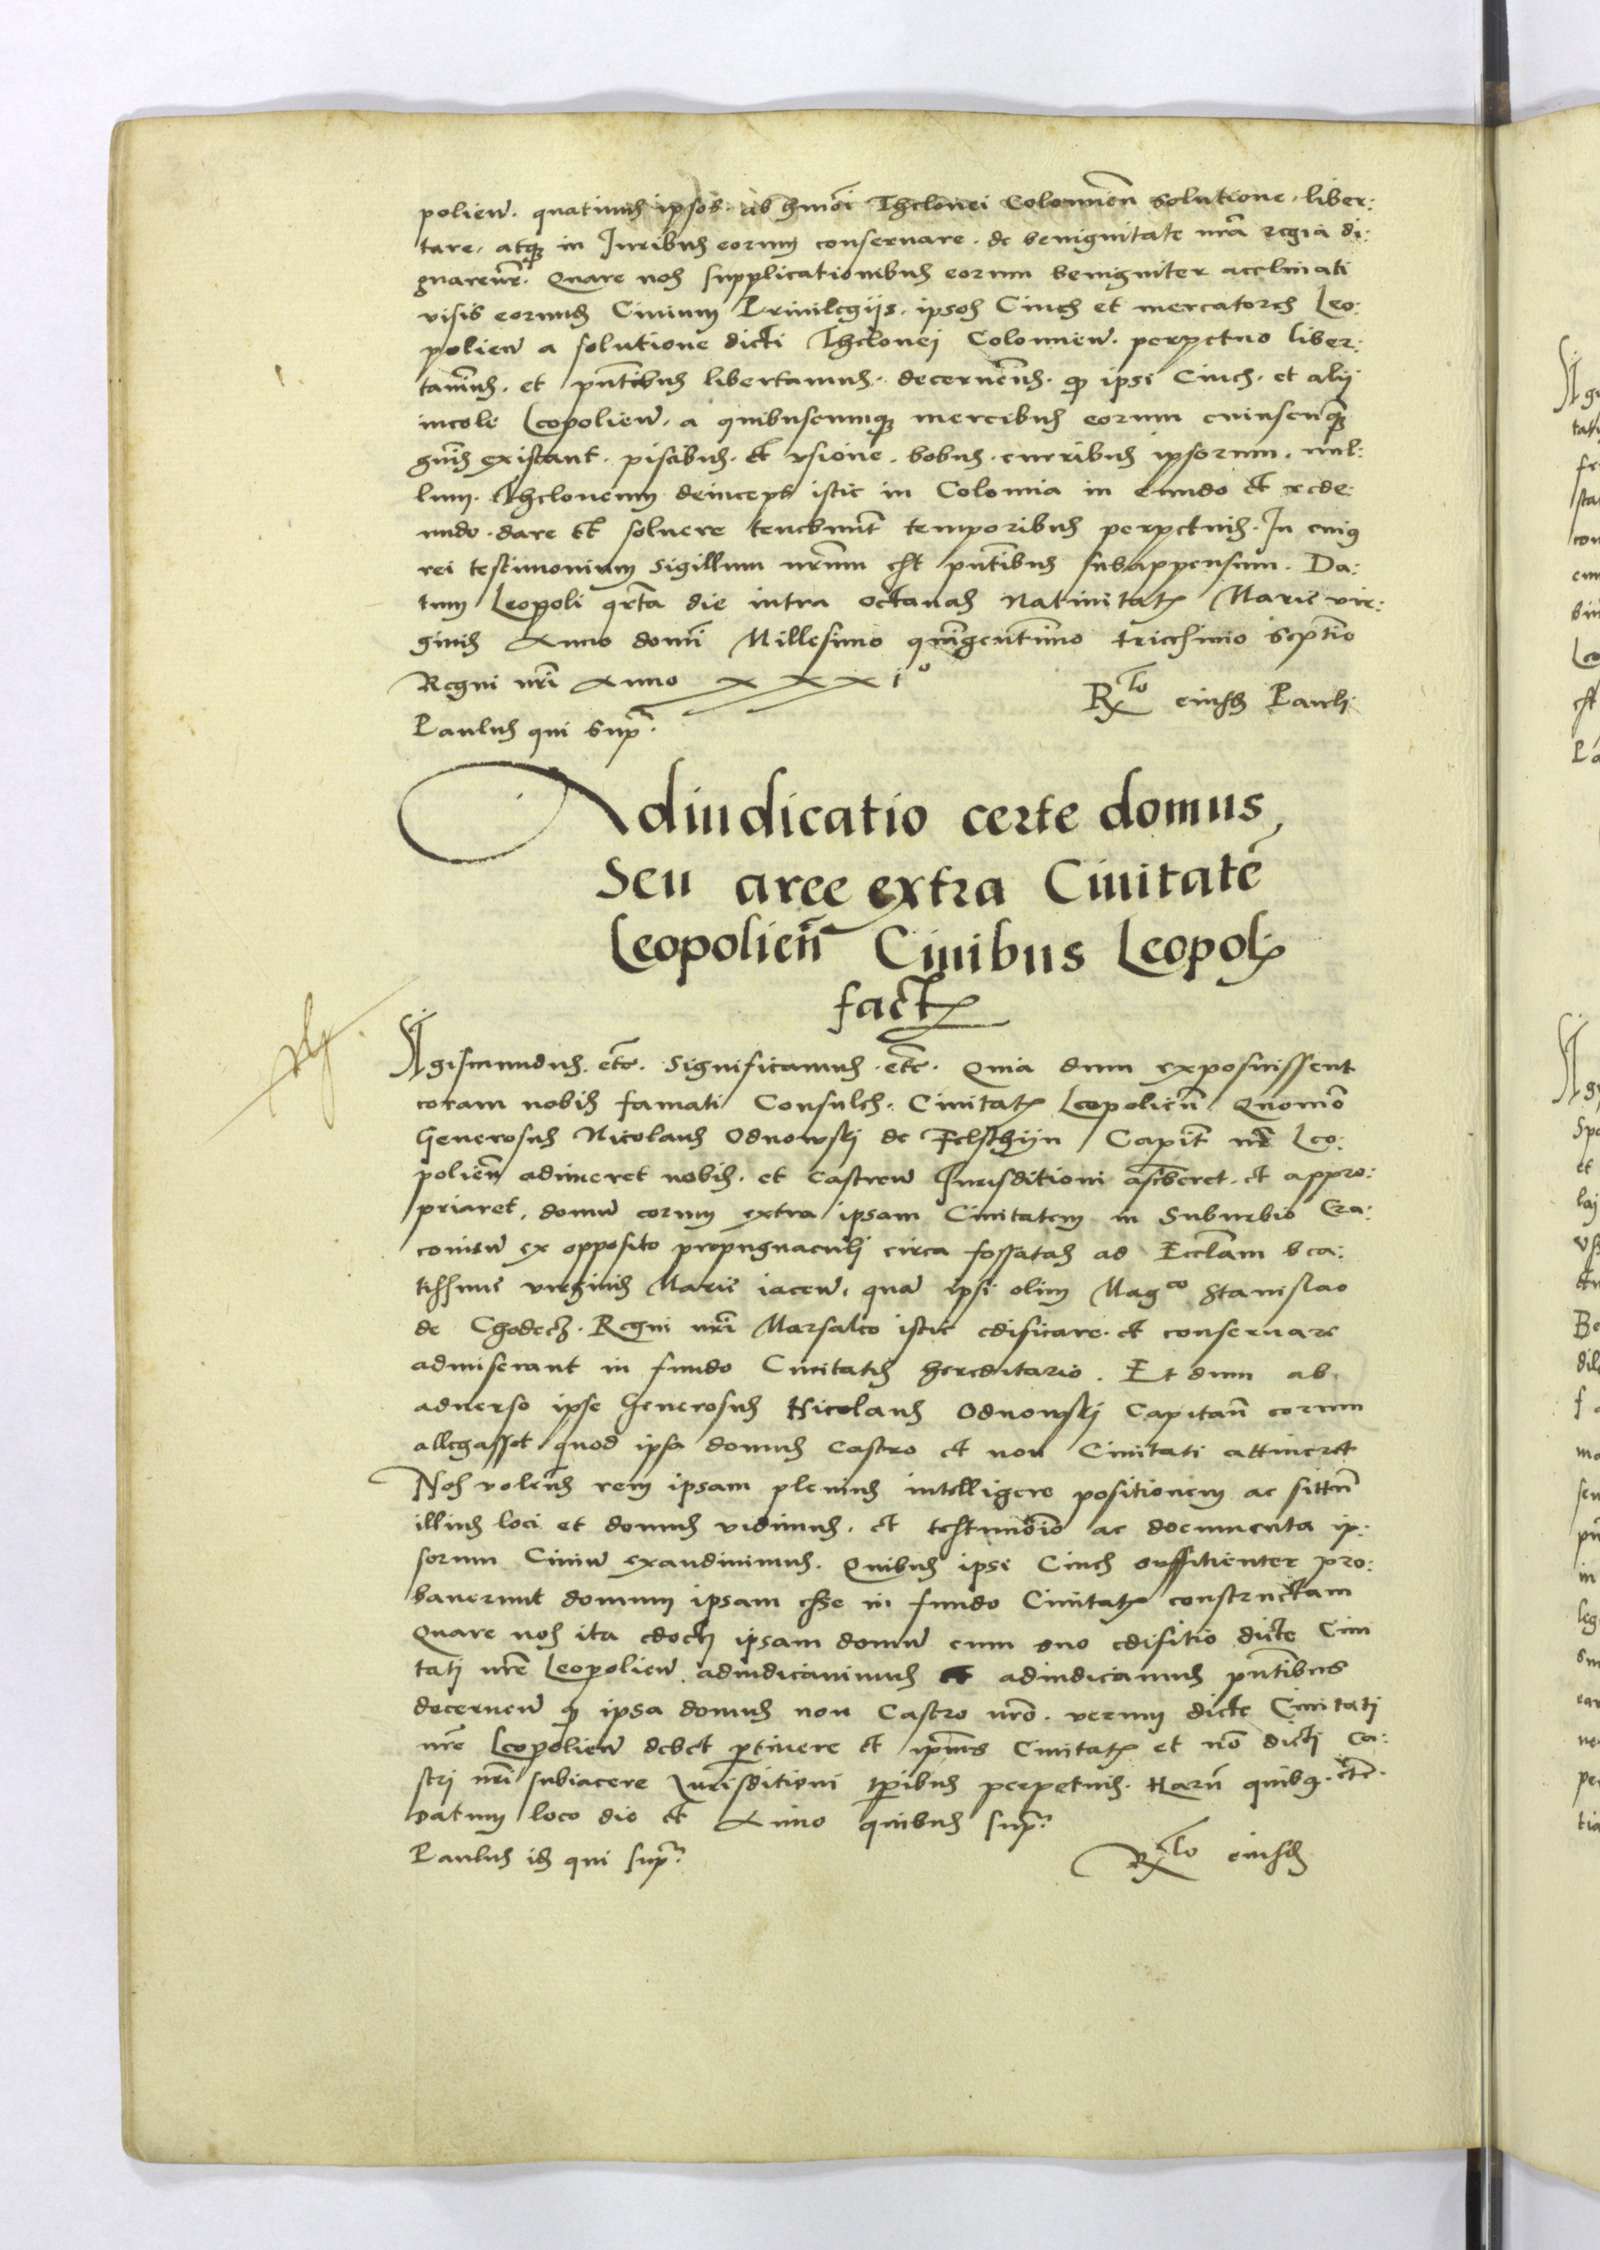 polien̄. quatinus ipsos ab hmōi Thelonei Colomien̄ solutione. liber:
tare. atq₃ in Iuribus eorum conseruare. de benignitate nrā regia di:
gnaremr̄. Quare nos supplicationibus eorum benigniter acclinati
visis eorundem Ciuium Priuilegijs. ipsos Ciues et mercatores Leo:
polien̄ a solutione dicti Thelonej Colomien̄. perpetuo liber:
tauim̄us. et pn̄tibus libertamus. decernen̄. qp ipsi Ciues. et alij
incole Leopolien̄. a quibuscumq₃ mercibus eorum cuiuscunq₃
gn̄is existant. piscibus. et vsione. bobus. curribus ipsorum. nul:
lum. Theloneum deinceps istic in Colomia in eundo et rede:
undo. dare et soluere tenebunt̄ temporibus perpetuis. In cuius
rei testimonium sigillum nrūm est pn̄tibus subappensum. Da:
tum Leopoli qrta die intra octauas Natiuitatis Marie vir:
ginis Anno domi̅ Millesimo quingentimo tricesimo septio
Regni nri̅ Anno xxxi°
Rtō eiusdē Pauli
Paulus qui supra.
Adiudicatio certe domus,
Seu aree extra Ciuitatē
Leopolien̄ Ciuibus Leopol.
fact.
Sigismundus. etc̄. Significamus. etc̄. Quia dum exposuissent
coram nobis famati Consules. Ciuitatis Leopolien̄ Quomo̅
Generosus Nicolaus Odnowskj de Felschtijn Capit̄ nr̄ Leo:
polien̄ adimeret nobis. et Castren̄ Iurisditioni ascberet. et appro:
priaret. domū eorum extra ipsam Ciuitatem in Suburbio Cra:
couien̄ ex opposito propugnaculj circa fossatas ad Eccl̄am bea:
tissime virginis Marie iacen̄. quā ipsi olim Mag̊co Stanislao
de Chodecz. Regni nri̅ Marsalco istic edificare. et conseruare
admiserant in fundo Ciuitatis hereditario. Et dum ab.
aduerso ipse Generosus Nicolaus Odnowskj Capitan̄ eorum
allegasset quod ipsa domus Castro et non Ciuitati attineret
Nos volen̄s rem ipsam plenius intelligere positionem ac sittū
illius loci et domus vidimus. et testimōio ac documenta ip:
sorum Ciuiū exaudiuimus. Quibus ipsi Ciues suffitienter pro:
bauerunt domum ipsam esse in fundo Ciuitatis constructam
Quare nos ita edocti ipsam domū cum suo edifitio dicte Ciui
tatj nrē Leopolien̄. adiudicauimus et adiudicamus pn̄tibus
decernen̄ qp ipsa domus non Castro nrō. verum dicte Ciuitati
nrē Leopolien̄ debet ptinere et ipsius Ciuitatis et nō dicti Ca:
stri nri̅ subiacere Iurisditioni tp̄ibus perpetuis. Harū quibus. etc̄.
Datum loco die et Anno quibus supra.
Paulus idē qui supra.
Rtō eiusdē